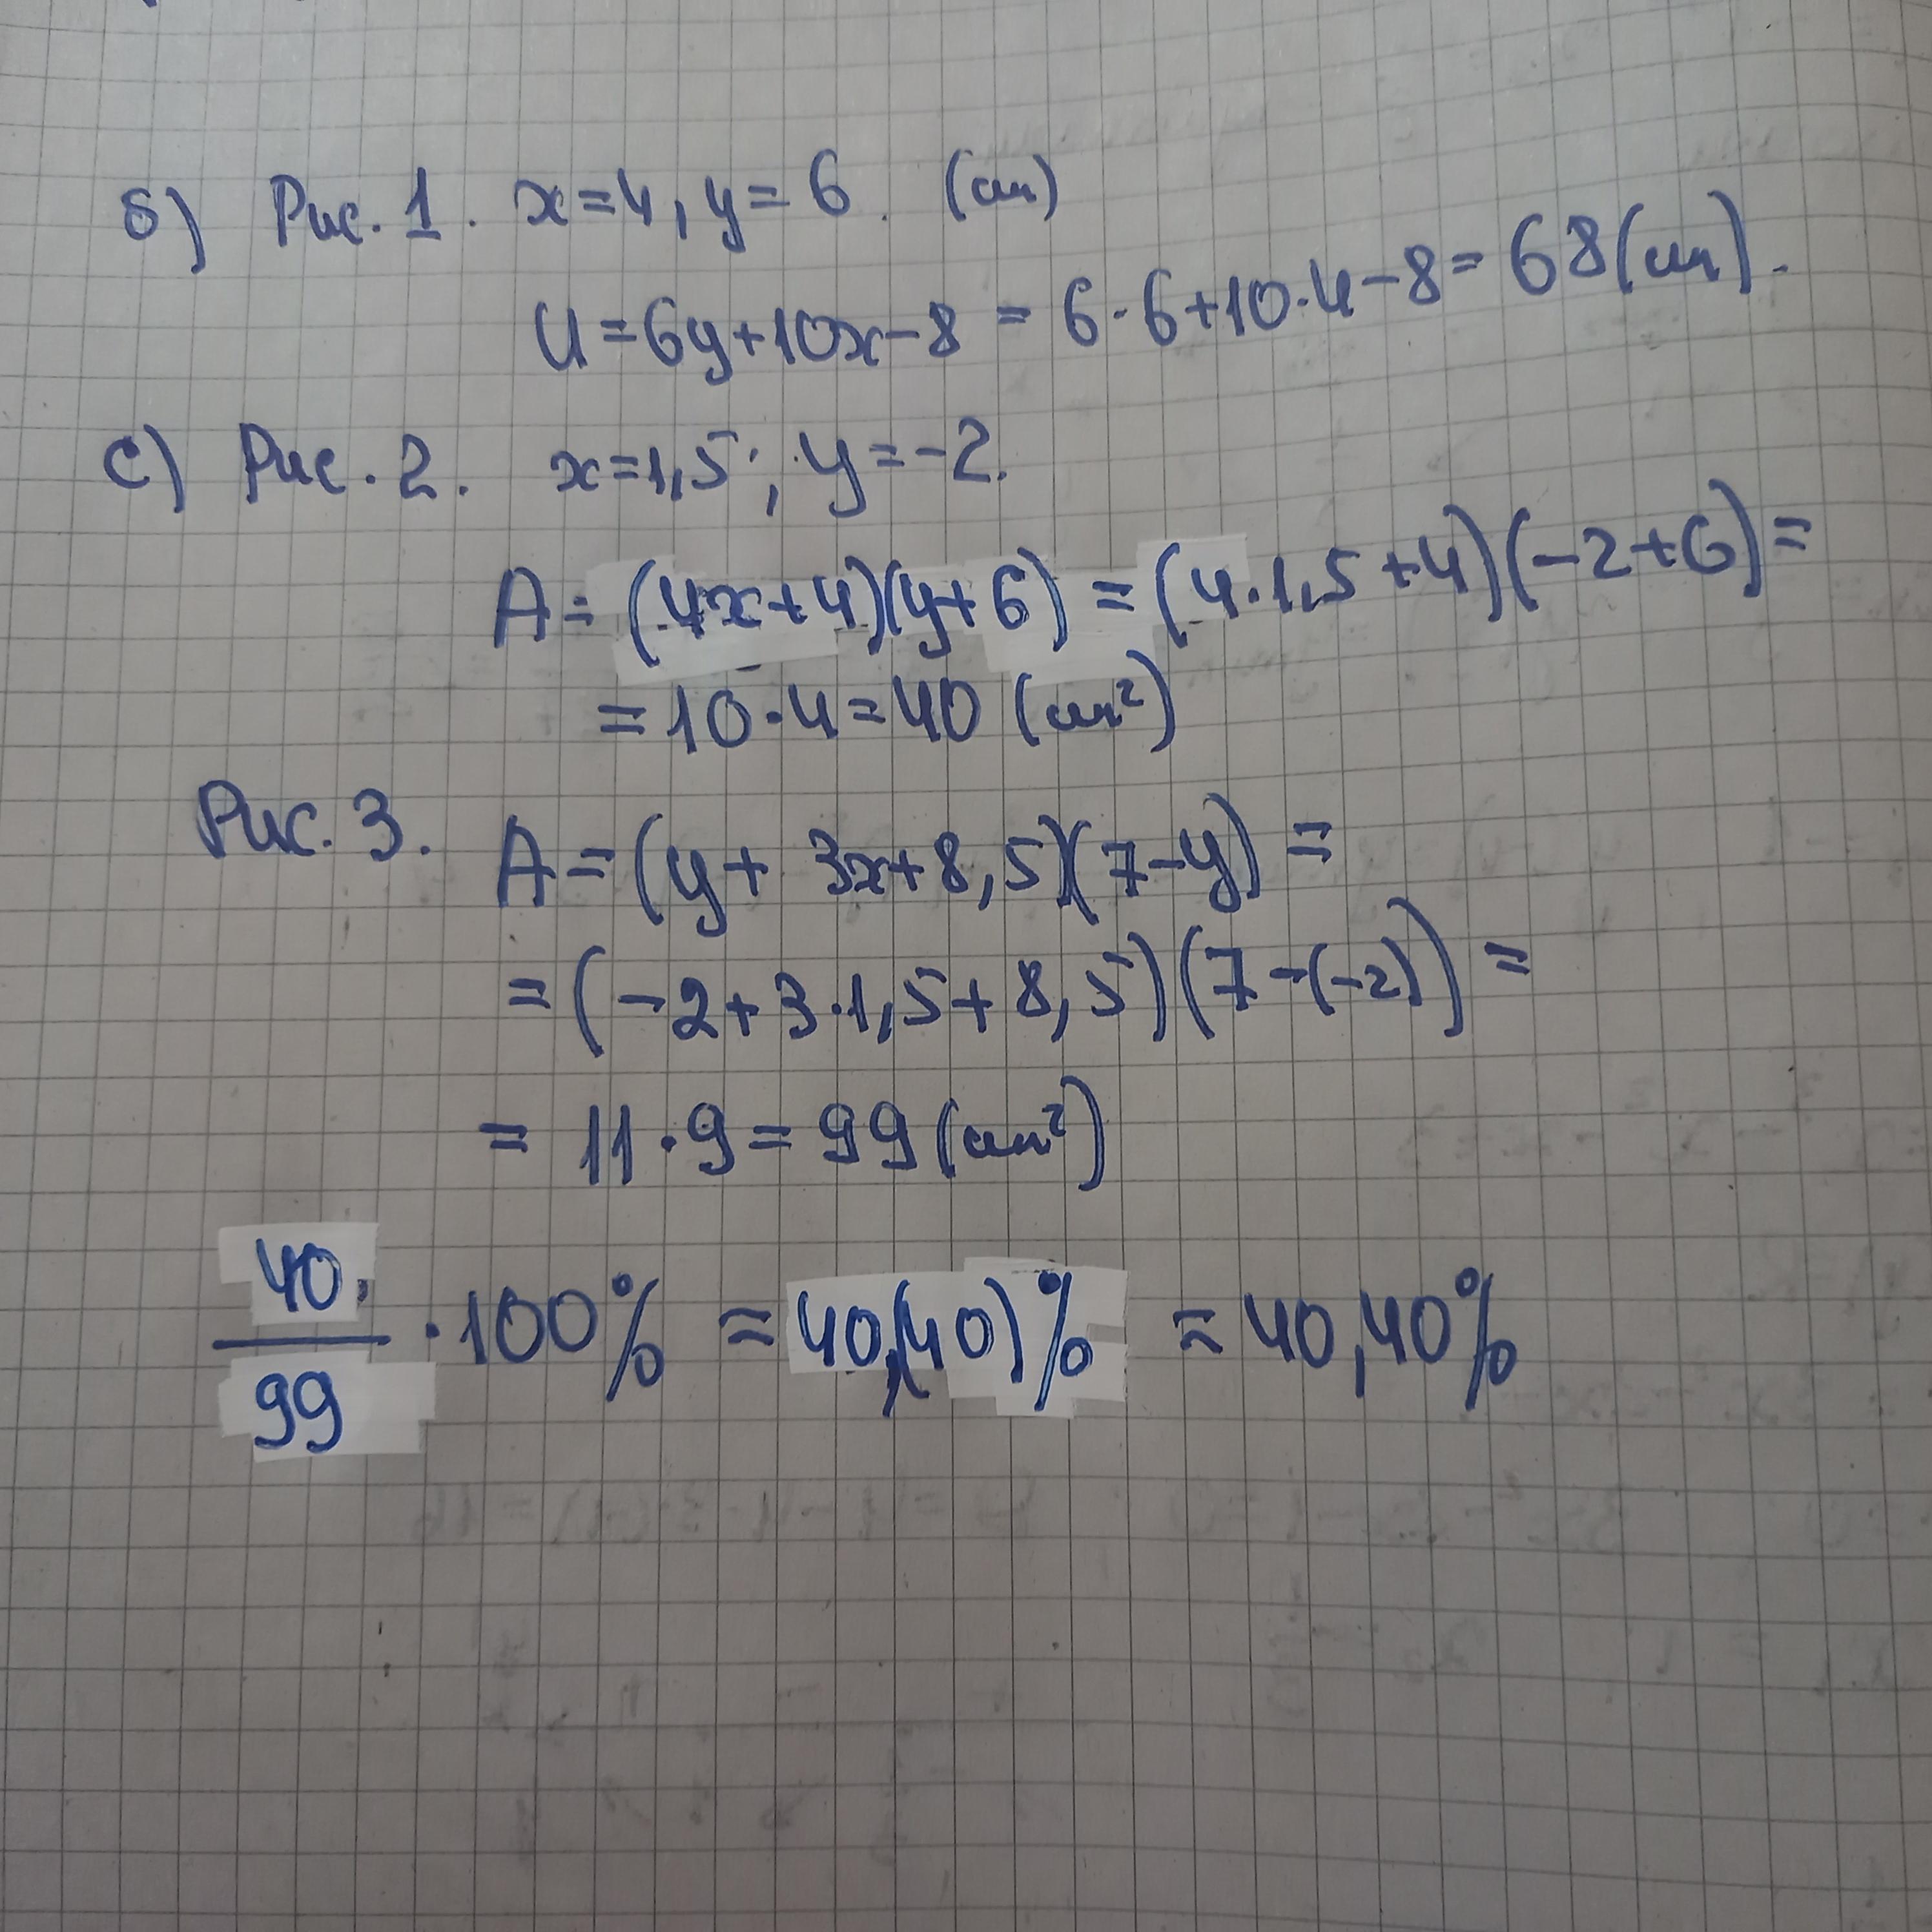 б) Рис. 1. x=4, y=6. (см)
U=6y+10x-8 = 6·6+10·4-8= 68(см).
c) Рис. 2. x=1,5; y=-2.
A= (4x+4)(y+6) = (4·1,5+4)(-2+6)=
=10·4=40 (см²)
Рис. 3. A=(y+ 3x+8,5)(7-y) =
=(-2+3·1,5+8,5)(7-(-2)) =
= 11·9=99(см²)
40/99 ·100% = 40,(40)% ≈ 40,40%